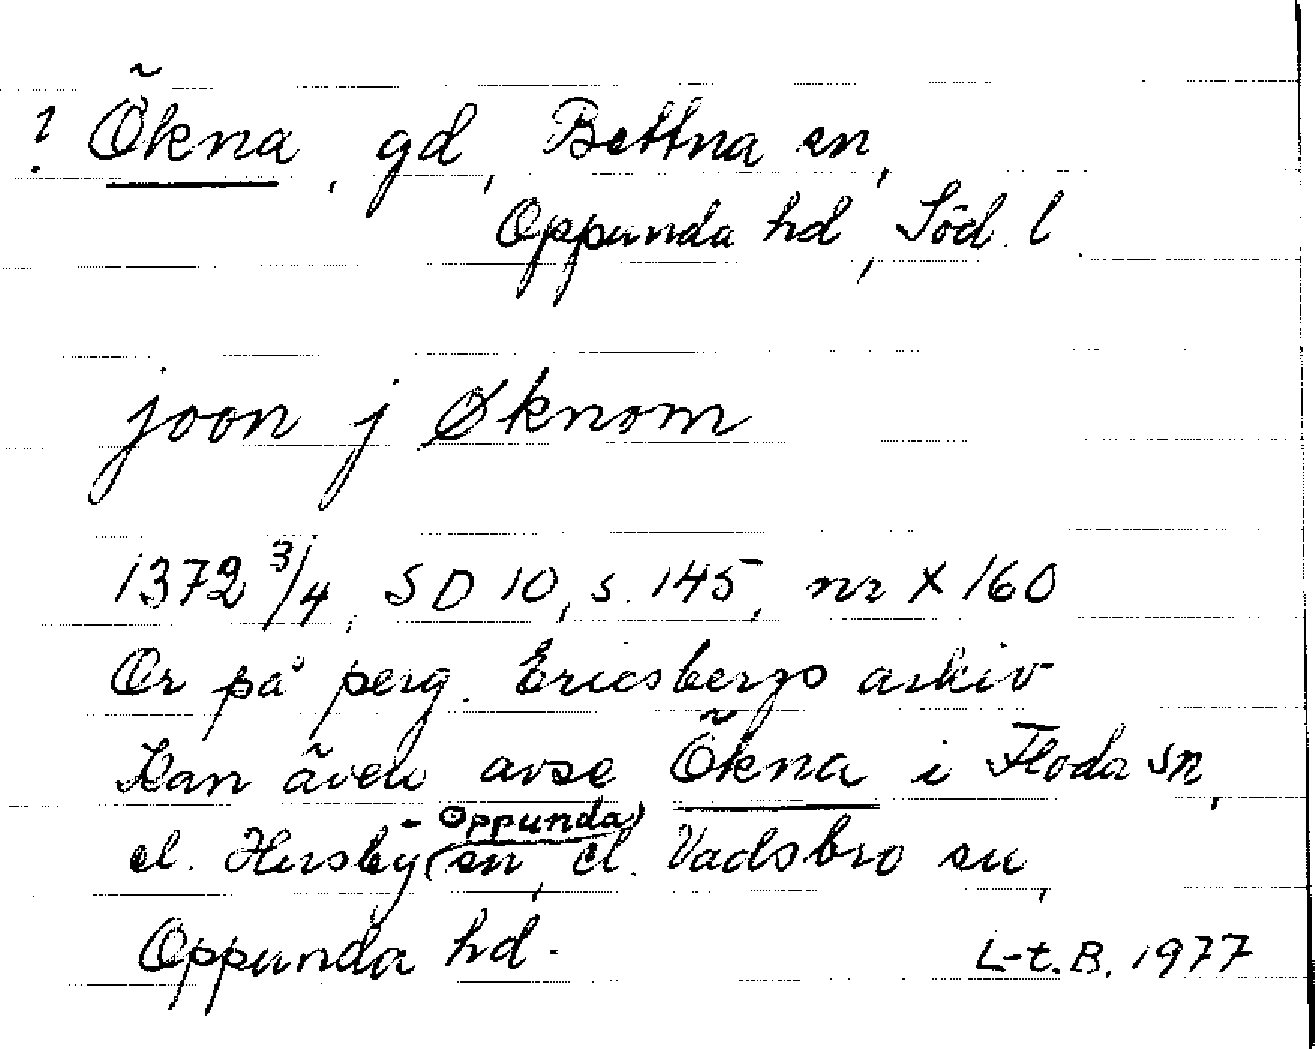 ? Ökna, gd, Bettna sn,
Oppunda hd, Söd. l.
joon j Øknom
1372 3/4, SD 10, s. 145, nr X 160
Or på perg. Ericsbergs arkiv
Kan även avse Ökna i Floda sn,
- Oppunda)
el. Husby (sn, el. Vadsbro sn,
Oppunda hd.
L-t. B. 1977